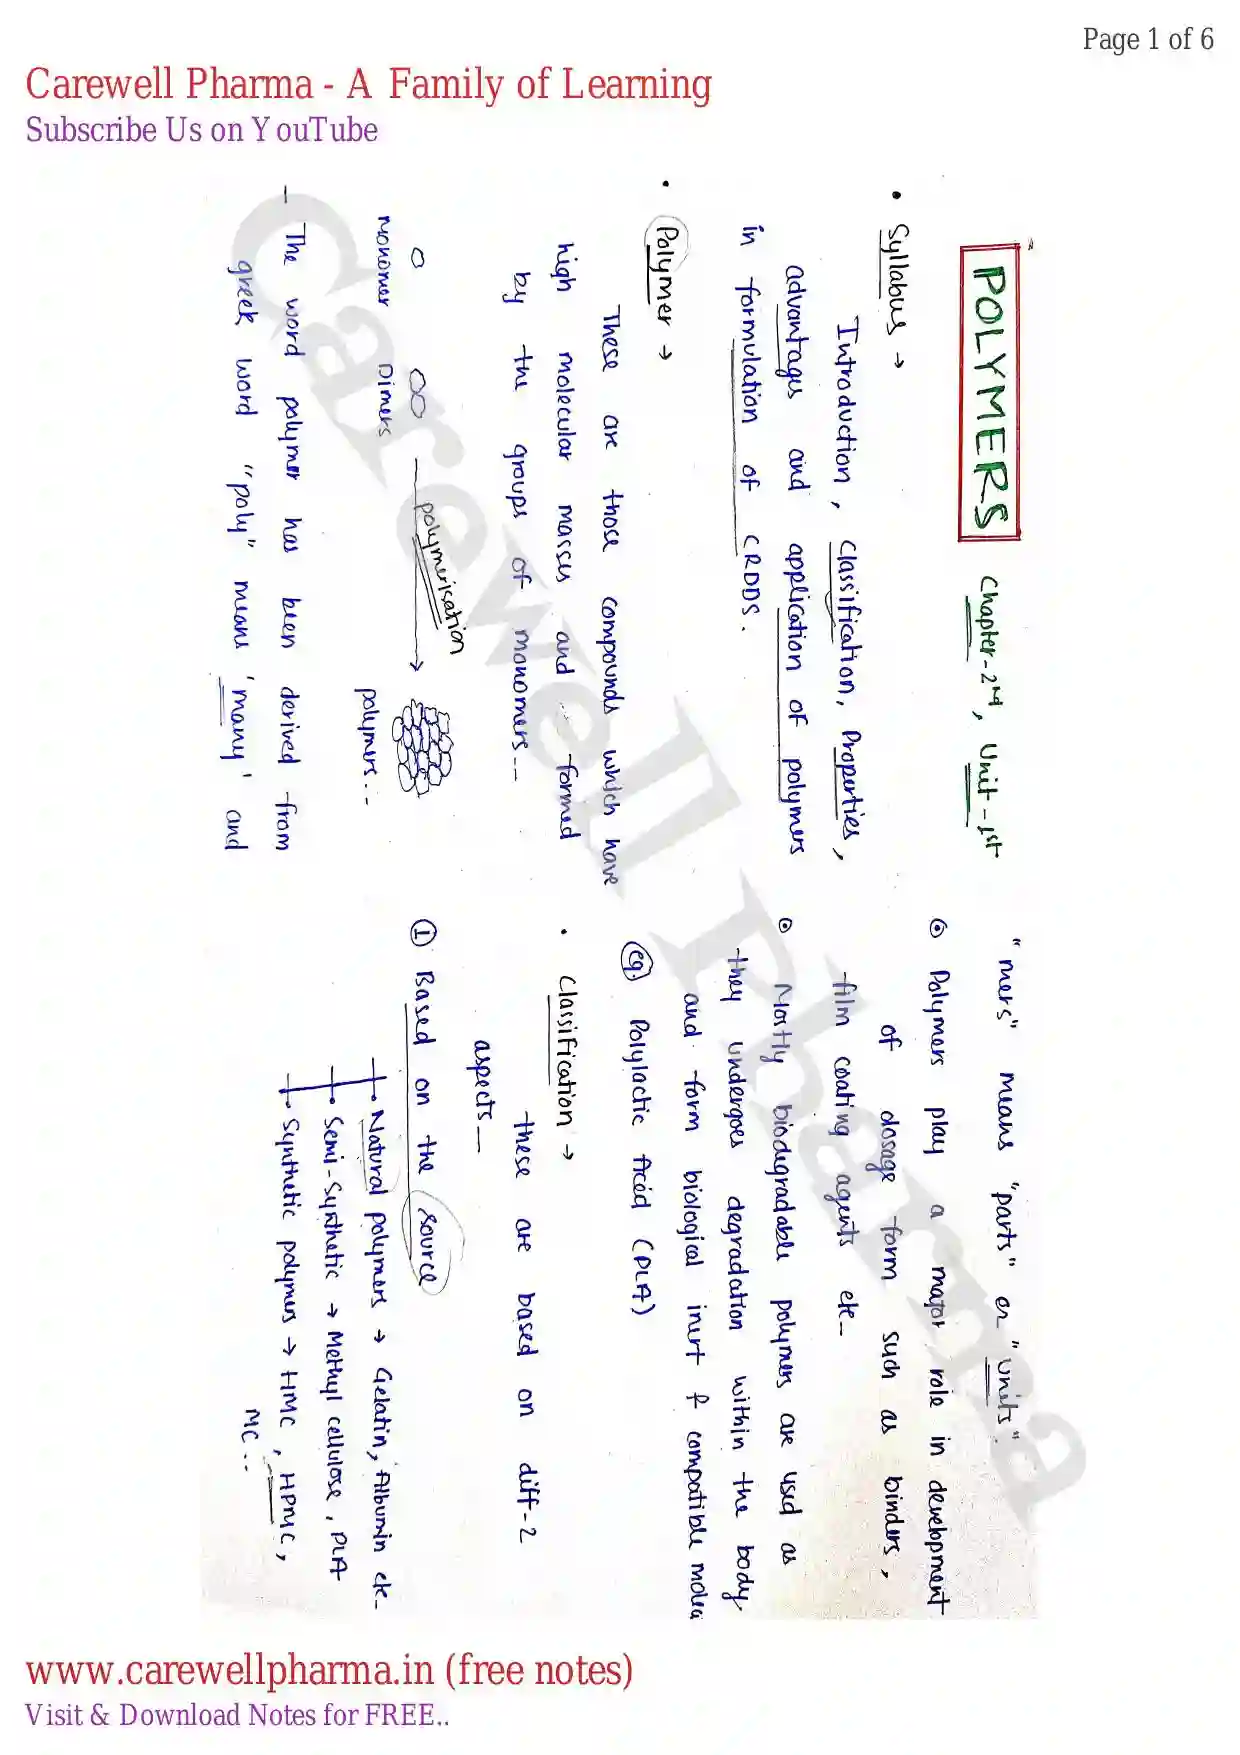 Page 1 of 6
Carewell Pharma - A Family of Learning
Subscribe Us on YouTube
POLYMERS Chapter-2nd, Unit-1st
• Syllabus →
Introduction, Classification, Properties,
advantages and application of polymers
in formulation of CRDDS.
• Polymer →
These are those compounds which have
high molecular masses and formed
by the groups of monomers...
monomer Dimers polymerisation polymers...
- The word polymer has been derived from
greek word "poly" means 'many' and
"mers" means "parts" or "units".
⊙ Polymers play a major role in development
of dosage form such as binders,
film coating agents etc-
⊙ Mostly biodegradable polymers are used as
they undergoes degradation within the body
and form biological inert & compatible molec
eg. Polylactic Acid (PLA)
• Classification →
these are based on diff-2
aspects—
① Based on the source
Natural polymers → Gelatin, Albumin etc-
Semi-Synthetic → Methyl cellulose, PLA
Synthetic polymers → HMC, HPMC,
MC..
Carewell Pharma
www.carewellpharma.in (free notes)
Visit & Download Notes for FREE..